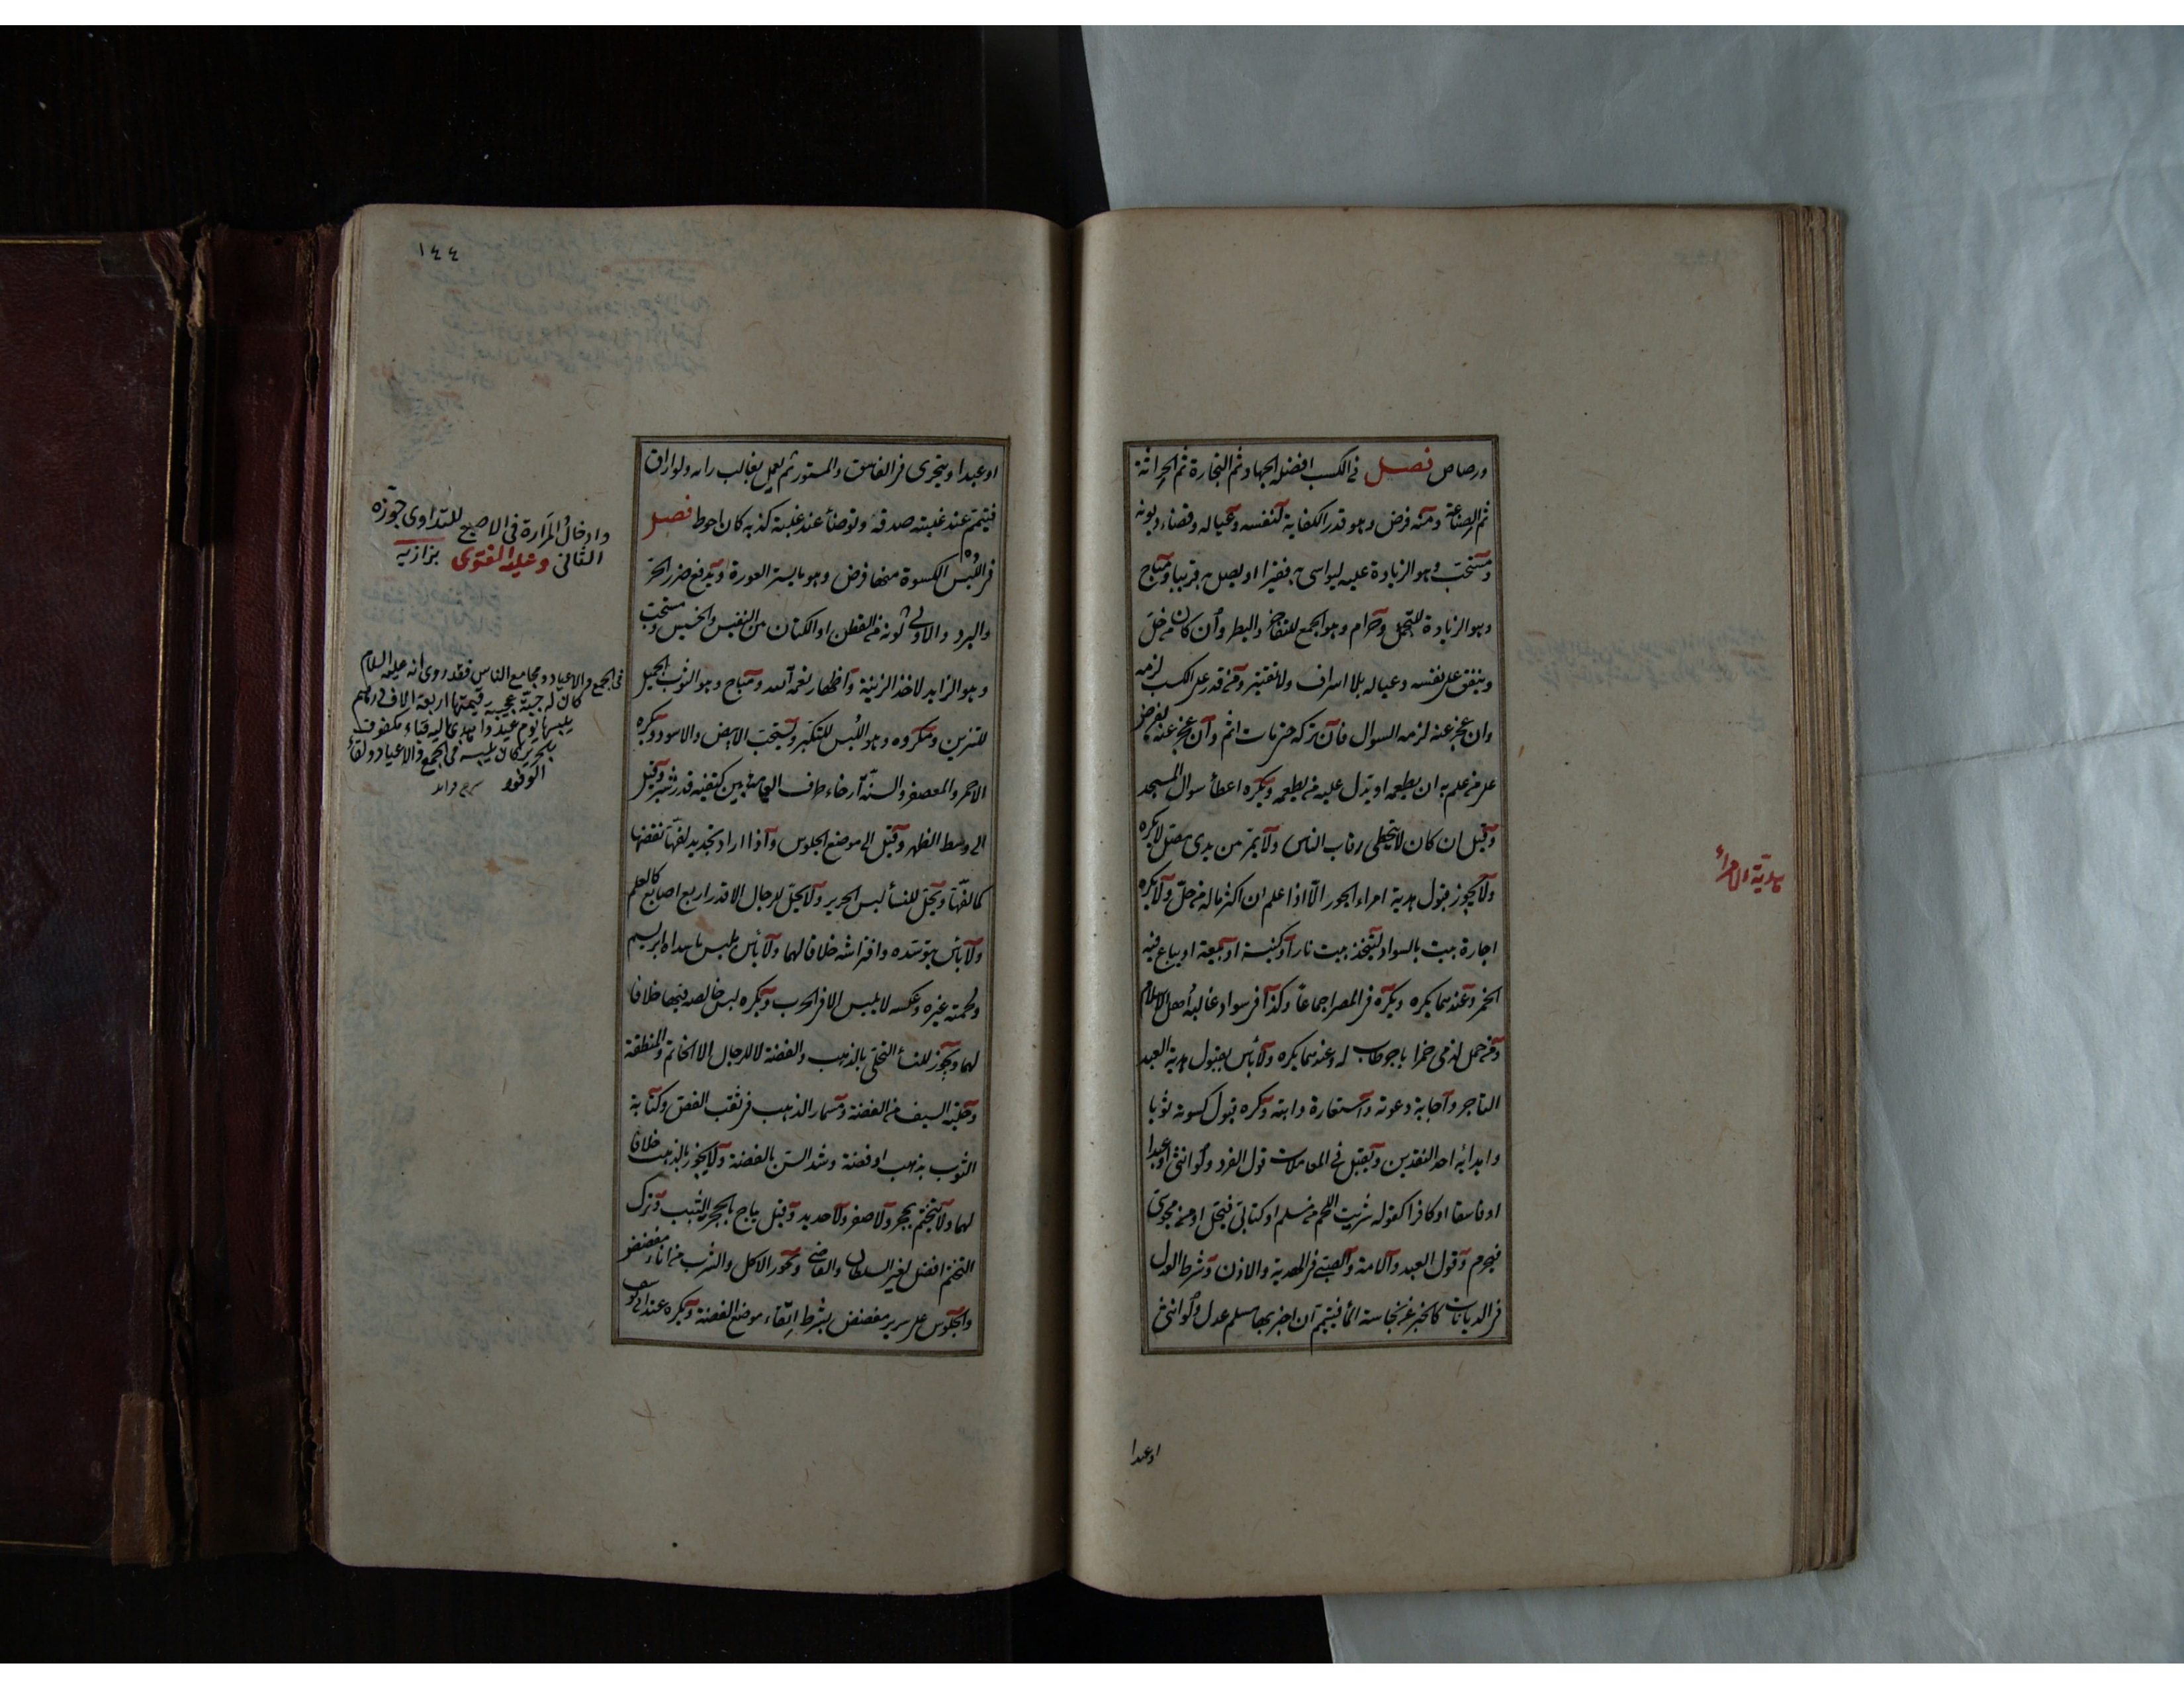 ورصاص فصل في الكسب افضله الجهاد ثم التجارة ثم الحراثة
ثم الصناعة ومنه فرض وهو قدر الكفاية لنفسه وعياله وقضاء ديونه
ومستحب وهو الزيادة عليه ليواسى به فقيرا او يصل به قريبا ومباح
وهو الزيادة للتجمل وحرام وهو الجمع للتفاخر والبطر وان كان من حل
وينفق على نفسه وعياله بلا اسراف ولا تقتير ومن قدر على الكسب لزمه
وان عجز عنه لزمه السوال فان تركه حتى مات اثم وان عجز عنه يفرض
على من علم به ان يطعمه او يدل عليه من يطعمه ويكره اعطأ سوال المسجد
وقيل ان كان لا يتخطى رقاب الناس ولا يمر من يدى مصل لا يكره
ولا يجوز قبول هدية امراء الجور الا اذا علم ان اكثر ماله من حل ولا يكره
اجارة بيت بالسواد ليتخذ بيت نار او كنيسة او بيعة او يباع فيه
الخمر وعندهما يكره ويكره في المصر اجماعا وكذا في سواد غالبه اهل الاسلام
ومن حمل لذمى خمرا باجر طاب له وعندهما يكره ولا بأس بقبول هدية العبد
التاجر واجابة دعوته واستعارة دابته وكره قبول كسوته ثوبا
واهدائه احد النقدين ويقبل في المعاملات قول الفرد ولو انثى او عبدا
او فاسقا او كافرا كقوله شريت اللحم من مسلم او كتابى فيحل او من مجوسى
فيحرم وقول العبد والامة والصبى في الهدية والاذن وشرط العدل
في الديانات كالخبر عن نجاسة المأ فيتيمم ان اخبر بها مسلم عدل ولو انثى
او عبدا
هدية الامرأ
١٤٤
او عبدا ويتحرى في الفاسق والمستور ثم يعمل بغالب رايه ولو اراق
فيتمم عند غلبته صدقه وتوضأ عند غلبة كذبه كان احوط فصل
في اللبس الكسوة منها فرض وهو ما يستر العورة ويدفع ضرر الحر
والبرد والاولى كونه من القطن او الكتان بين النفيس والخسيس ومستحب
وهو الزايد لاخذ الزينة واظهار نعمة الله ومباح وهو الثوب الجميل
للتزين ومكروه وهو اللبس للتكبر ويستحب الابيض والاسود ويكره
الاحمر والمعصفر والسنة ارخاء طرف العمامة بين كتفيه قدر شبر وقيل
الى وسط الظهر وقيل الى موضع الجلوس واذا اراد تجديد لفها نقضها
كما لفها ويحل للنسأ لبس الحرير ولا يحل للرجال الا قدر اربع اصابع كالعلم
ولا بأس بتوسده وافتراشه خلافا لهما ولا بأس بلبس ما سداه ابريسم
ولحمته غيره وعكسه لا يلبس الا في الحرب ويكره لبس خالصه فيها خلافا
لهما ويجوز للنسأ التحلى بالذهب والفضة لا للرجال الا الخاتم والمنطقة
وحلية السيف من الفضة ومسمار الذهب في ثقب الفص وكتابة
الثوب بذهب او فضة وشد السن بالفضة ولا يجوز بالذهب خلافا
لهما ولا يتختم بحجر ولا صفر ولا حديد وقيل يباح بالحجر اليشب وترك
التختم افضل لغير السلطان والقاضى ويجوز الاكل والشرب من اناء مفضض
والجلوس على سرير مفضض بشرط اتقاء موضع الفضة ويكره عند ابى يوسف
وادخال المرارة في الاصبع للتداوى جوزه
الثانى وعليه الفتوى بزازيه
في الجمع والاعياد ومجامع الناس فقد روى انه عليه السلام
كان له جبة عجيبة قيمتها اربعة الاف درهم
يلبسها يوم عيد واهدى اليه قباء مكفوف
بالحرير كان يلبسه في الجمع والاعياد ولقأ
الوفود